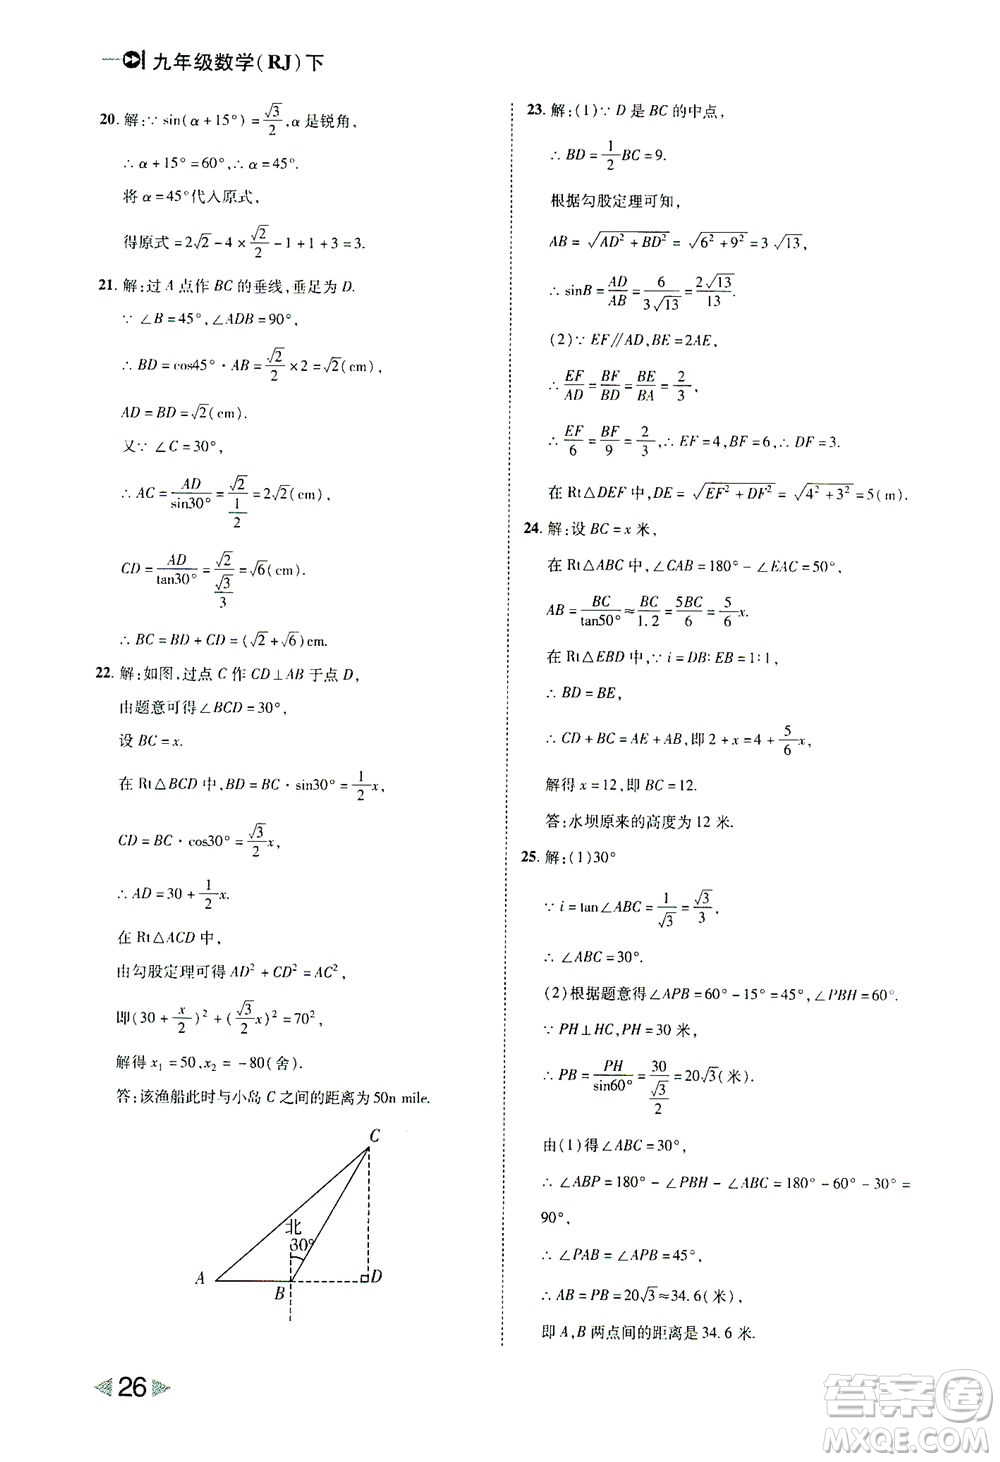 九年级数学(RJ)下
20. 解:∵ sin(α+15°)=√3/2,α是锐角,
∴ α+15°=60°,∴ α=45°.
将 α=45°代入原式,
得原式=2√2-4×√2/2-1+1+3=3.
21. 解:过 A 点作 BC 的垂线,垂足为 D.
∵ ∠B=45°,∠ADB=90°,
∴ BD=cos45°·AB=√2/2×2=√2(cm),
AD=BD=√2(cm).
又∵ ∠C=30°,
∴ AC=AD/sin30°=√2/(1/2)=2√2(cm),
CD=AD/tan30°=√2/(√3/3)=√6(cm).
∴ BC=BD+CD=(√2+√6)cm.
22. 解:如图,过点 C 作 CD⊥AB 于点 D,
由题意可得∠BCD=30°,
设 BC=x.
在 Rt△BCD 中,BD=BC·sin30°=1/2x,
CD=BC·cos30°=√3/2x,
∴ AD=30+1/2x.
在 Rt△ACD 中,
由勾股定理可得 AD²+CD²=AC²,
即(30+x/2)²+(√3/2x)²=70²,
解得 x₁=50,x₂=-80(舍).
答:该渔船此时与小岛 C 之间的距离为50n mile.
C
北
30°
A
B
D
26
23. 解:(1)∵ D 是 BC 的中点,
∴ BD=1/2BC=9.
根据勾股定理可知,
AB=√(AD²+BD²)=√(6²+9²)=3√13,
∴ sinB=AD/AB=6/(3√13)=2√13/13.
(2)∵ EF∥AD,BE=2AE,
∴ EF/AD=BF/BD=BE/BA=2/3,
∴ EF/6=BF/9=2/3,∴ EF=4,BF=6,∴ DF=3.
在 Rt△DEF 中,DE=√(EF²+DF²)=√(4²+3²)=5(m).
24. 解:设 BC=x 米,
在 Rt△ABC 中,∠CAB=180°-∠EAC=50°,
AB=BC/tan50°≈BC/1.2=5BC/6=5/6x.
在 Rt△EBD 中,∵ i=DB:EB=1:1,
∴ BD=BE,
∴ CD+BC=AE+AB,即 2+x=4+5/6x,
解得 x=12,即 BC=12.
答:水坝原来的高度为 12 米.
25. 解:(1)30°
∵ i=tan∠ABC=1/√3=√3/3,
∴ ∠ABC=30°.
(2)根据题意得∠APB=60°-15°=45°,∠PBH=60°.
∵ PH⊥HC,PH=30 米,
∴ PB=PH/sin60°=30/(√3/2)=20√3(米).
由(1)得∠ABC=30°,
∴ ∠ABP=180°-∠PBH-∠ABC=180°-60°-30°=
90°,
∴ ∠PAB=∠APB=45°,
∴ AB=PB=20√3≈34.6(米),
即 A,B 两点间的距离是 34.6 米.
答案圈
MXQE.COM